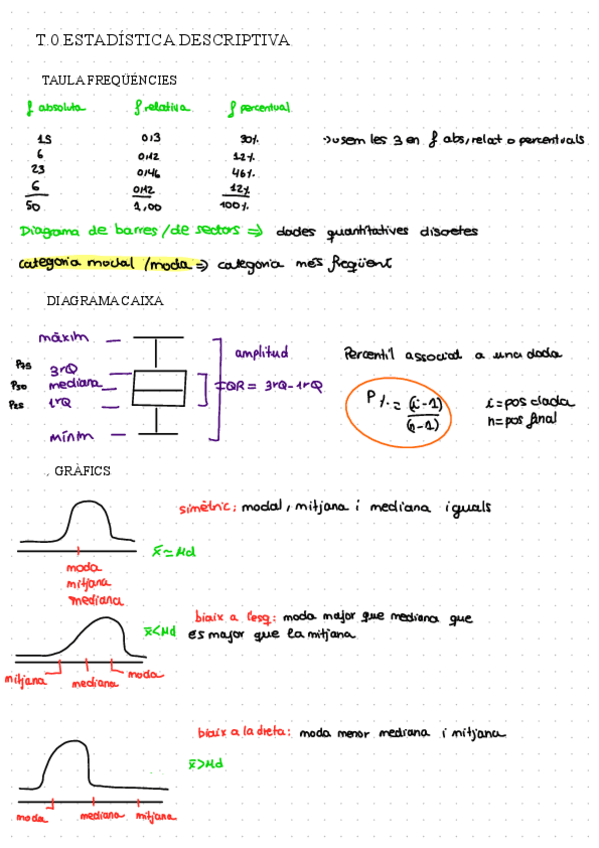 T.0 ESTADÍSTICA DESCRIPTIVA
TAULA FREQÜÈNCIES
f absoluta f relativa f percentual
15 0'3 30%. →usem les 3 en f abs, relat o percentuals
6 0'12 12%
23 0'46 46%
6 0'12 12%
50 1,00 100%.
Diagrama de barres/de sectors ⇒ dades quantitatives discretes
categoria modal/moda ⇒ categoria més freqüent
DIAGRAMA CAIXA
màxim
amplitud
Percentil associat a una dada
P75 3rQ
P50 mediana
IQR = 3rQ-1rQ
P25 1rQ
P%.= (i-1)
(n-1)
i=pos dada
n=pos final
mínim
. GRÀFICS
simètric: modal, mitjana i mediana iguals
x̄≃Md
moda
mitjana
mediana
biaix a l'esq: moda major que mediana que
x̄<Md
és major que la mitjana
mitjana mediana moda
biaix a la dreta: moda menor mediana i mitjana
x̄>Md
moda mediana mitjana